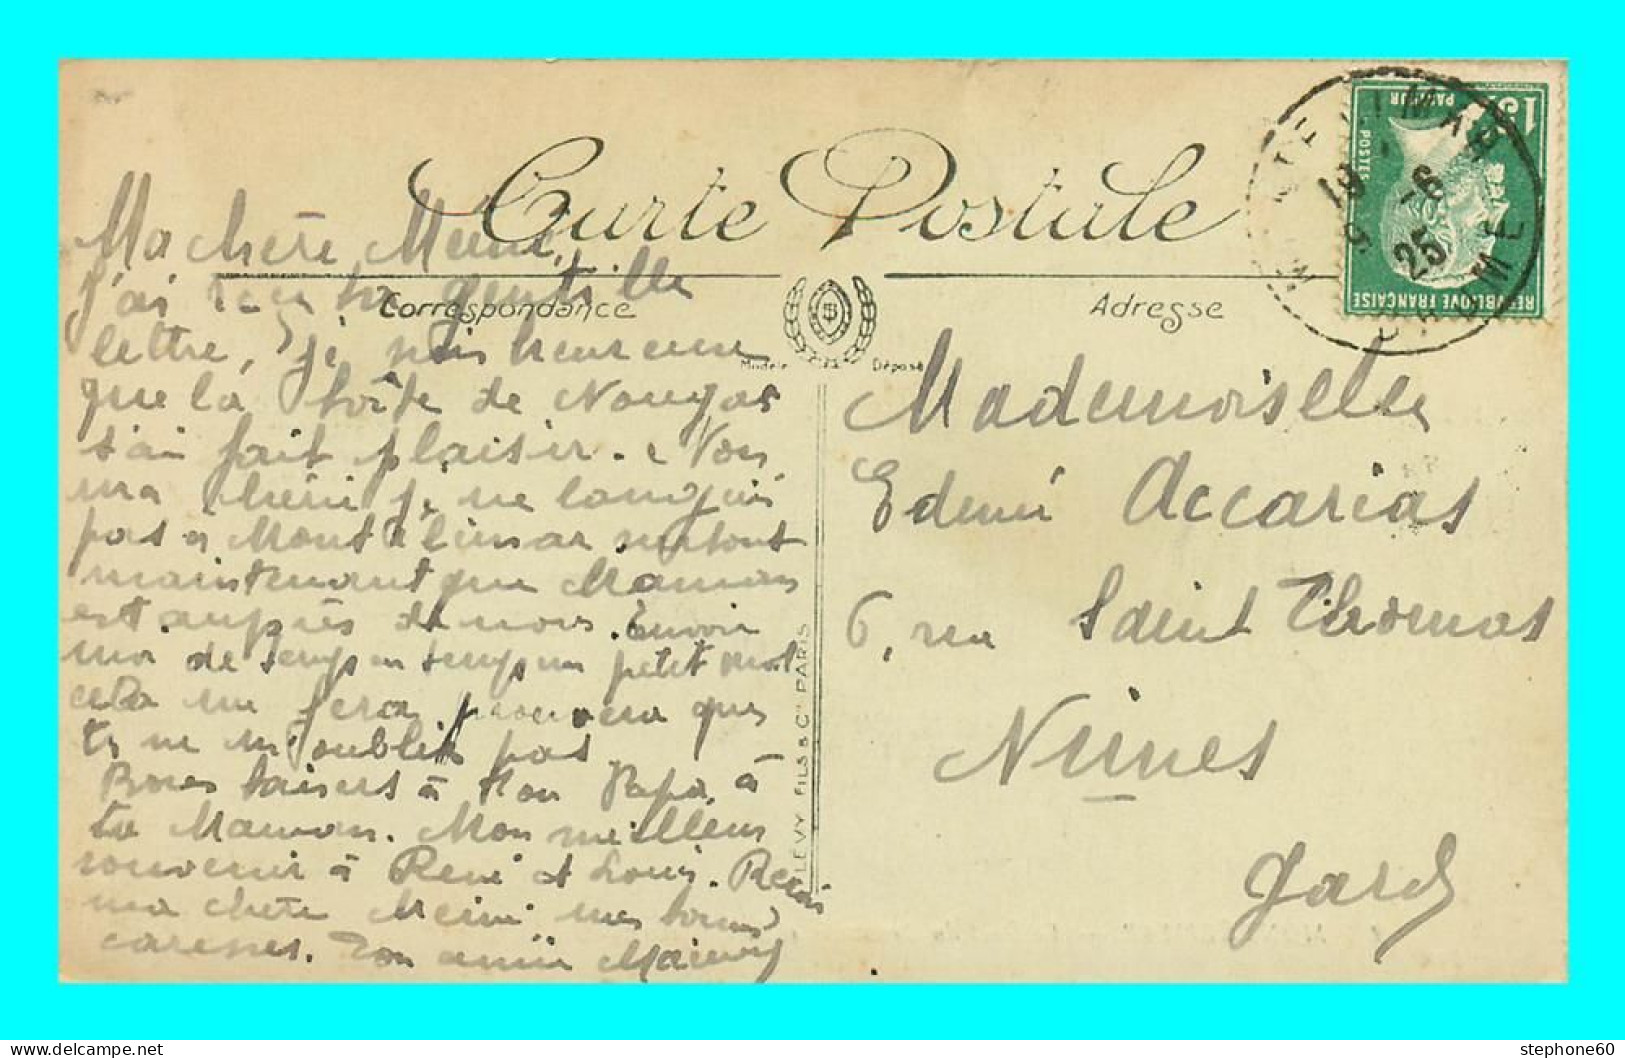 Carte Postale
Correspondance
Adresse
Modèle
Déposé
Ma chère Meiné,
J'ai reçu ta gentille
lettre, je suis heureuse
que la boîte de Nougat
t'ai fait plaisir. Non,
ma chérie je ne languis
pas à Montélimar surtout
maintenant que Maman
est auprès de nous. Envoie
moi de temps en temps un petit mot
cela me fera prouvera que
tu ne m'oublie pas
Bons baisers à ton Papa, à
ta Maman. Mon meilleur
souvenir à René et Louis. Reçois
ma chère Meiné mes bonnes
caresses. Ton amie
LÉVY FILS & Cie PARIS
Mademoiselle
Edmée Accarias
6, rue Saint Thomas
Nîmes
Gard
15c
PASTEUR
POSTES
REPUBLIQUE FRANÇAISE
MONTELIMAR
19 -6
25
DROME
stephone60